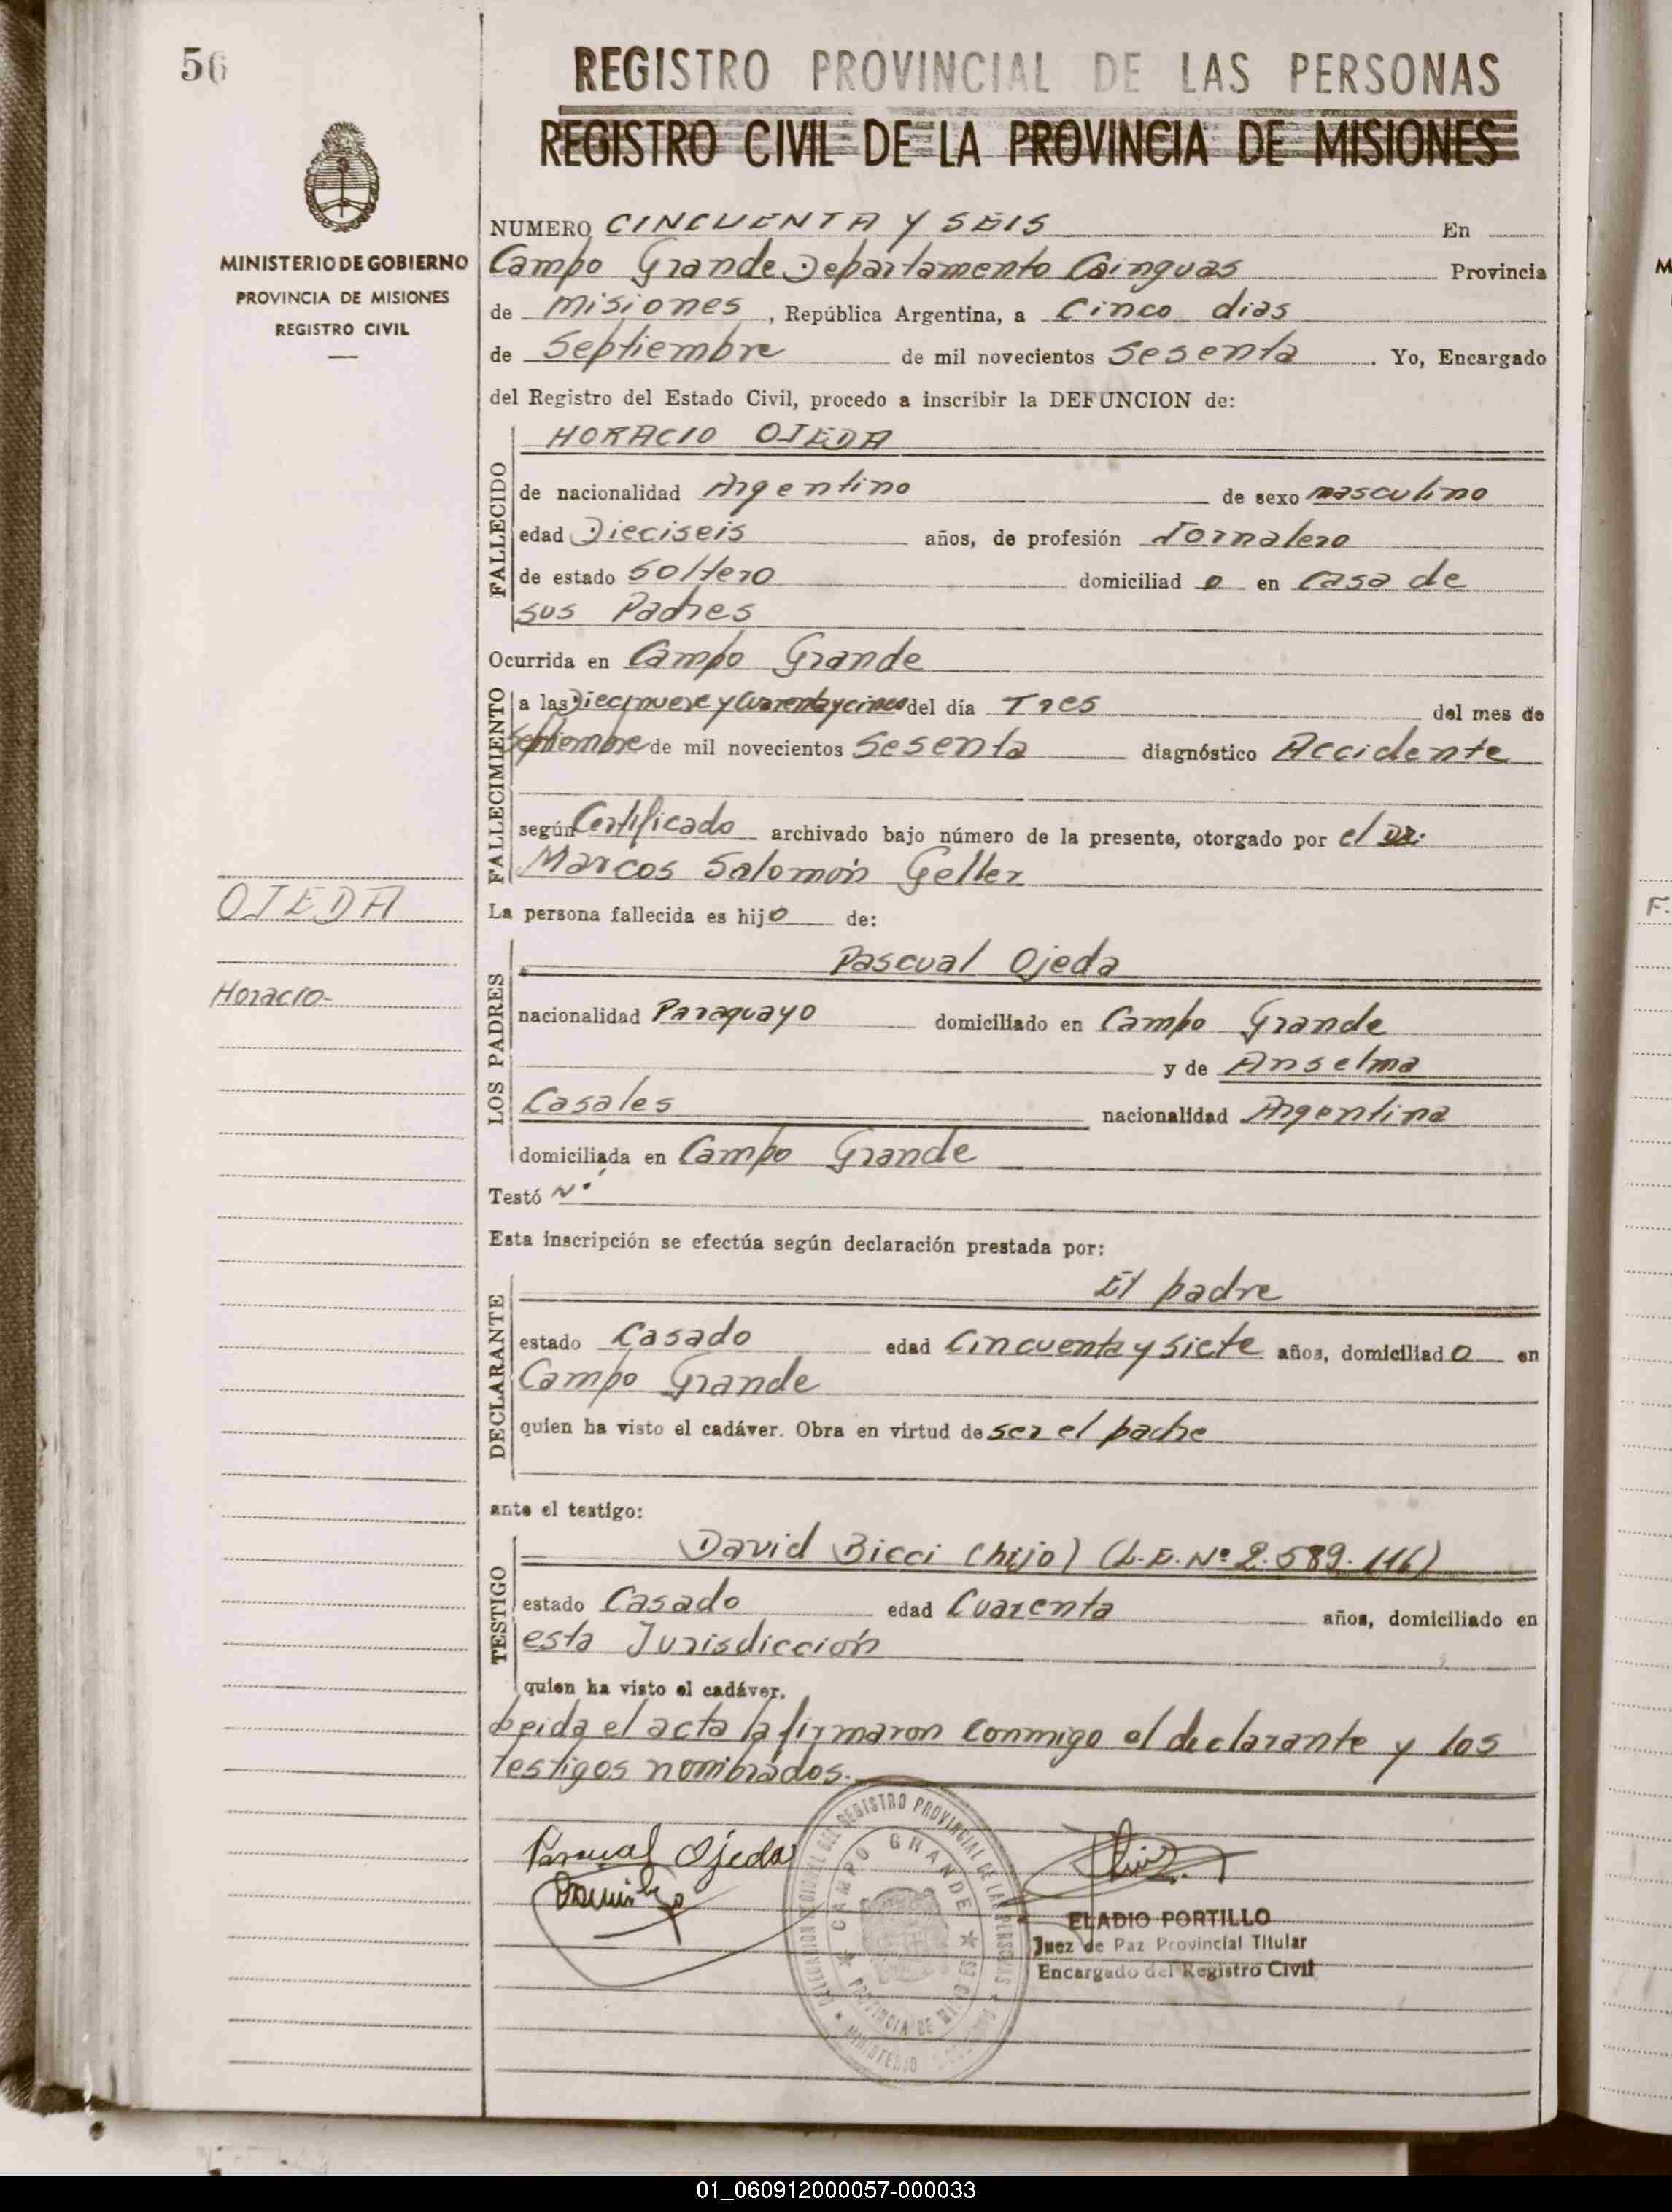 56
REGISTRO PROVINCIAL DE LAS PERSONAS
REGISTRO CIVIL DE LA PROVINCIA DE MISIONES
MINISTERIO DE GOBIERNO
PROVINCIA DE MISIONES
REGISTRO CIVIL
NUMERO CINCUENTA Y SEIS En
Campo Grande Departamento Cainguas Provincia
de Misiones, República Argentina, a Cinco dias
de Septiembre de mil novecientos Sesenta. Yo, Encargado
del Registro del Estado Civil, procedo a inscribir la DEFUNCION de:
FALLECIDO
HORACIO OJEDA
de nacionalidad Argentino de sexo masculino
edad Dieciseis años, de profesión Jornalero
de estado Soltero domiciliado en Casa de
sus Padres
Ocurrida en Campo Grande
FALLECIMIENTO
a las Diecinueve y Cuarenta y cinco del día Tres del mes de
Septiembre de mil novecientos Sesenta diagnóstico Accidente
según Certificado archivado bajo número de la presente, otorgado por el Dr.
Marcos Salomón Geller
OJEDA
Horacio-
La persona fallecida es hijo de:
LOS PADRES
Pascual Ojeda
nacionalidad Paraguayo domiciliado en Campo Grande
y de Anselma
Casales nacionalidad Argentina
domiciliada en Campo Grande
Testó Nº
Esta inscripción se efectúa según declaración prestada por:
DECLARANTE
El padre
estado Casado edad Cincuenta y Siete años, domiciliado en
Campo Grande
quien ha visto el cadáver. Obra en virtud de ser el padre
ante el testigo:
TESTIGO
David Bicci (hijo) (L.E. Nº 2.589.116)
estado Casado edad Cuarenta años, domiciliado en
esta Jurisdicción
quien ha visto el cadáver.
Leida el acta la firmaron conmigo el declarante y los
testigos nombrados.
Pascual Ojeda
DELEGACION DEL REGISTRO PROVINCIAL DE LAS PERSONAS
CAMPO GRANDE
PROVINCIA DE MISIONES
MINISTERIO
ELADIO PORTILLO
Juez de Paz Provincial Titular
Encargado del Registro Civil
M
F.
01_060912000057-000033